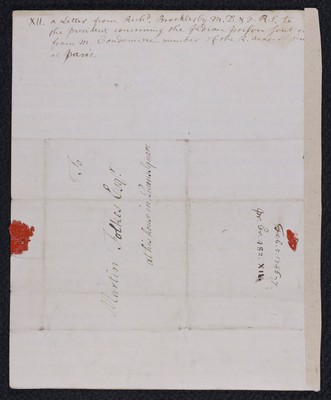 XII. a Letter from Richd. Brocklesby M.D. & F.R.S. to
the president concerning the Indian poison sent
from M. Condamine member of the R. acad.
at paris.
To
Martin Folkes Esqr.
at his house in Queen Square
XII